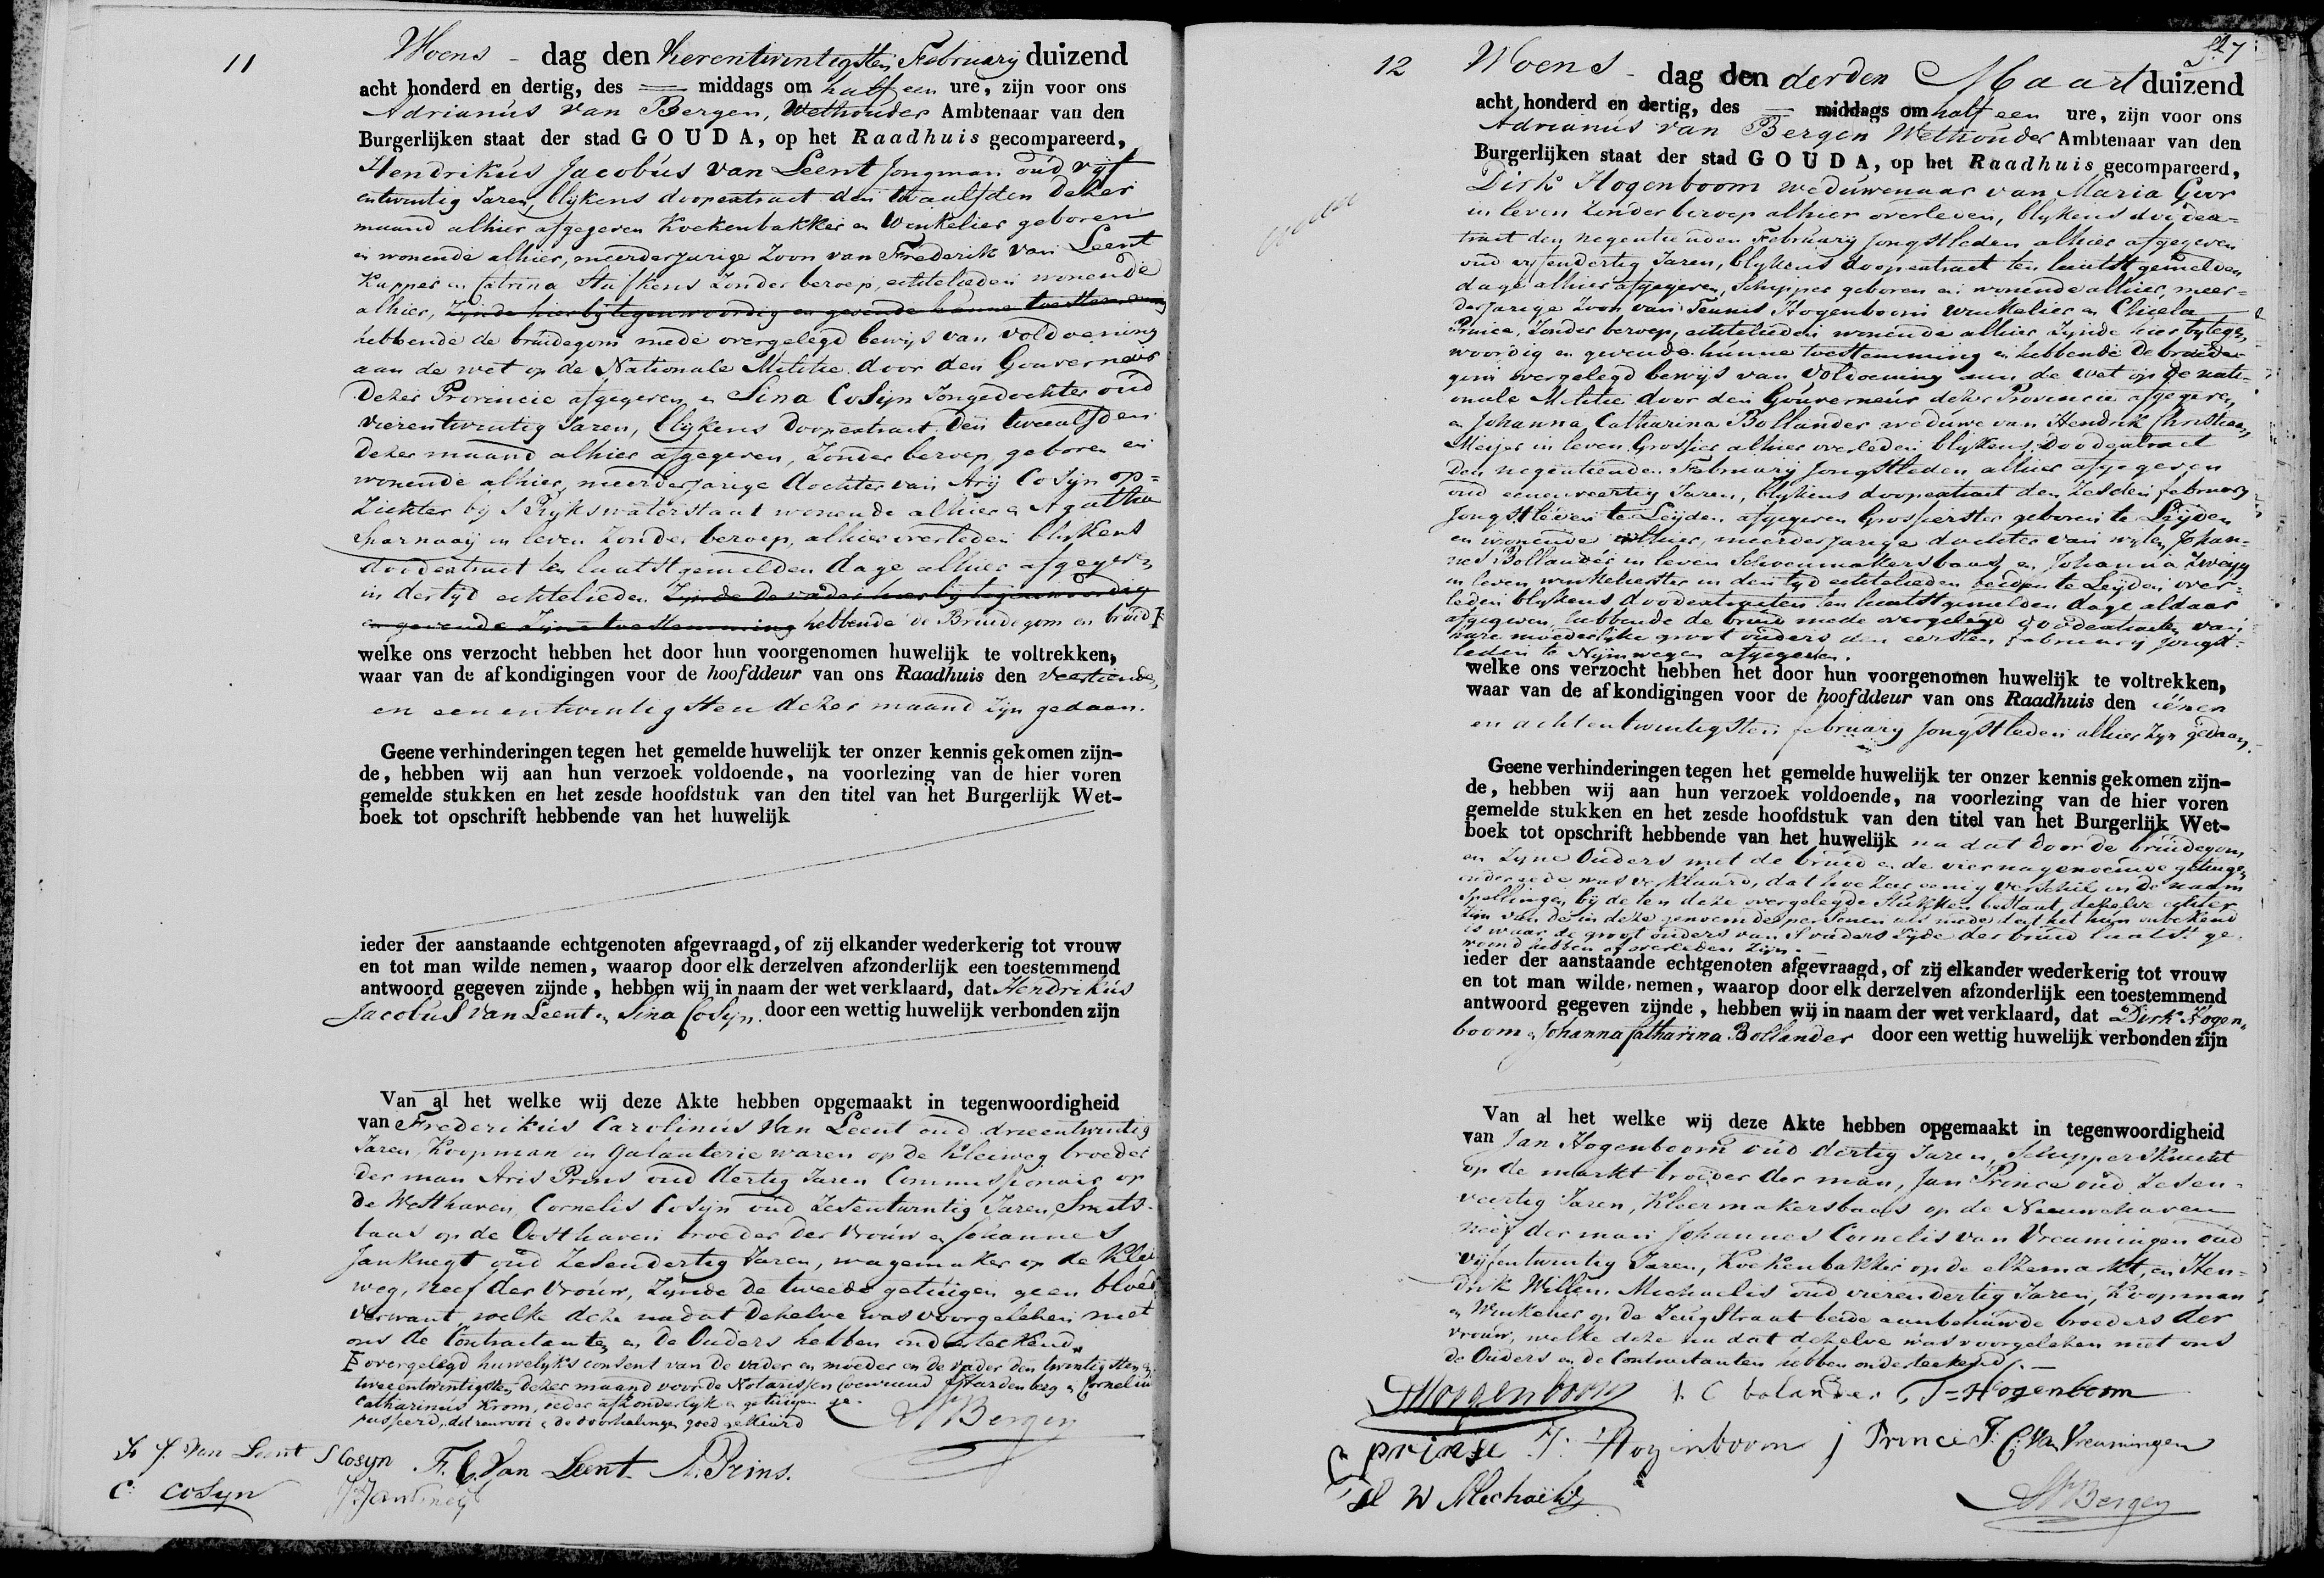 11
Woens - dag den Vierentwintigsten February duizend
acht honderd en dertig, des = middags om half een ure, zijn voor ons
Adrianus van Bergen, Wethouder Ambtenaar van den
Burgerlijken staat der stad GOUDA, op het Raadhuis gecompareerd,
Hendrikus Jacobus van Leent Jongman oud vijf
entwintig Jaren, blijkens doopextract den twaalfden dezer
maand alhier afgegeven Koekenbakker en Winkelier geboren
en wonende alhier, meerderjarige Zoon van Frederik van Leent
Kapper en Catrina Stuifkens Zonder beroep, echtelieden wonende
alhier, Zijnde hierbij tegenwoordig en gevende hunne toestemming
hebbende de bruidegom mede overgelegd bewijs van voldoening
aan de wet op de Nationale Militie door den Gouverneur
dezer Provincie afgegeven, en Sina Cosijn Jongedochter oud
vierentwintig Jaren, blijkens Doopextract den twaalfden
dezer maand alhier afgegeven, Zonder beroep, geboren en
wonende alhier, meerderjarige dochter van Arij Cosijn op=
Zichter bij S Rijkswaterstaat wonende alhier en Agatha
Sparnaaij in leven Zonder beroep, alhier overleden blijkens
doodextract ten laatstgemelden dage alhier afgegeven,
in dertijd echtelieden Zijnde de vader hierbij tegenwoordig
en gevende Zijne toestemming hebbende de Bruidegom en bruid
welke ons verzocht hebben het door hun voorgenomen huwelijk te voltrekken,
waar van de afkondigingen voor de hoofddeur van ons Raadhuis den veertienden,
en eenentwintigsten dezer maand zijn gedaan.
Geene verhinderingen tegen het gemelde huwelijk ter onzer kennis gekomen zijn-
de, hebben wij aan hun verzoek voldoende, na voorlezing van de hier voren
gemelde stukken en het zesde hoofdstuk van den titel van het Burgerlijk Wet-
boek tot opschrift hebbende van het huwelijk
ieder der aanstaande echtgenoten afgevraagd, of zij elkander wederkerig tot vrouw
en tot man wilde nemen, waarop door elk derzelven afzonderlijk een toestemmend
antwoord gegeven zijnde, hebben wij in naam der wet verklaard, dat Hendrikus
Jacobus van Leent en Sina Cosijn door een wettig huwelijk verbonden zijn
Van al het welke wij deze Akte hebben opgemaakt in tegenwoordigheid
van Frederikus Carolinus van Leent oud drieentwintig
Jaren, Koopman in Galanterie waren op de Kleiweg broeder
der man Aris Prins oud dertig Jaren Commissionair op
de Westhaven, Cornelis Cosijn oud Zesentwintig Jaren, Smits-
baas op de Oosthaven broeder der Vrouw en Johannes
Janknegt oud Zesendertig Jaren, wagemaker op de Klei
weg, neef der Vrouw, Zijnde de tweede getuigen geen bloed
verwant, welke deze nadat dezelve was voorgelezen met
ons de Contractanten en de Ouders hebben onderteekend
overgelegd huwelyks consent van de vader en moeder en de vader den twintigsten en
tweeentwintigsten dezer maand voor de Notarissen Hardenberg en Cornelis
Catharinus Krom, ieder afzonderlyk en getuigen ge-
passeerd, det renvooi en de doorhalingen goed gekeurd
AvBergen
H J. van Leent S Cosyn F. C. Van Leent. A. Prins.
C: Cosyn J. Janknegt
12
Woens - dag den derden Maart duizend
acht honderd en dertig, des = middags om half een ure, zijn voor ons
Adrianus van Bergen Wethouder Ambtenaar van den
Burgerlijken staat der stad GOUDA, op het Raadhuis gecompareerd,
Dirk Hogenboom weduwenaar van Maria Goor
in leven Zonder beroep alhier overleden, blykens doodex=
tract den negentienden February Jongstleden alhier afgegeven
oud vyfendertig Jaren, blykens doopextract ten laatst gemelden
dage alhier afgegeven, Schipper geboren en wonende alhier, meer=
derjarige Zoon van Teunis Hogenboom Winkelier en
Prince, Zonder beroep, echtelieden wonende alhier Zijnde hier by tegen,
woordig en gevende hunne toestemming en hebbende de bruide
gom overgelegd bewijs van Voldoening aan de wet op de nati-
onale Militie door den Gouverneur dezer Provincie afgegeven,
en Johanna Catharina Bollander weduwe van Hendrik Christiaan,
Meijer in leven Grossier alhier overleden blykens Doodextract
den negentienden February Jongstleden alhier afgegeven
oud eenenveertig Jaren, blykens doopextract den Zesden february
Jongstleden te Leijden afgegeven Grossierster geboren te Leijden
en wonende alhier, meerderjarige dochter van wylen Johan-
nes Bollander in leven Schoenmakersbaas en Johanna
in leven winkelierster in der tyd echtelieden beiden te Leijden over=
leden blykens doodextracten ten laatstgemelden dage aldaar
afgegeven, hebbende de bruid mede overgelegd doodextracten van
hare moederlyke groot ouders den eersten February Jongst-
leden te Nijmwegen afgegeven.
welke ons verzocht hebben het door hun voorgenomen huwelijk te voltrekken,
waar van de afkondigingen voor de hoofddeur van ons Raadhuis den
en achtentwintigsten february jongstleden alhier Zijn gedaan.
Geene verhinderingen tegen het gemelde huwelijk ter onzer kennis gekomen zijn-
de, hebben wij aan hun verzoek voldoende, na voorlezing van de hier voren
gemelde stukken en het zesde hoofdstuk van den titel van het Burgerlijk Wet-
boek tot opschrift hebbende van het huwelijk na dat door de bruidegom,
en Zijne Ouders met de bruid en de vier nagenoemde getuigen,
onder eede was verklaard, dat hoe Zeer eenig verschil in de naam
Spellingen bij de ten deze overgelegde stukken bestaat, dezelve echter
Zijn van de in deze genoemde persenen als mede dat het hun onbekend
is waar de groot ouders van S vaders Zijde der bruid laatst ge-
woond hebben of overleden Zijn.
ieder der aanstaande echtgenoten afgevraagd, of zij elkander wederkerig tot vrouw
en tot man wilde nemen, waarop door elk derzelven afzonderlijk een toestemmend
antwoord gegeven zijnde, hebben wij in naam der wet verklaard, dat Dirk Hogen,
boom en Johanna Catharina Bollander door een wettig huwelijk verbonden zijn
Van al het welke wij deze Akte hebben opgemaakt in tegenwoordigheid
van Jan Hogenboom oud dertig Jaren, Schippersknecht
op de markt broeder der man, Jan Prince oud Zesen-
veertig Jaren, Kleermakersbaas op de Nieuwehaven
neef der man Johannes Cornelis van Vreumingen oud
vijfentwintig Jaren, Koekenbakker op de markt, en Hen-
drik Willem Michaelis oud vierendertig Jaren, Koopman
en Winkelier op de Zeugstraat beide aanbehuwde broeders der
vrouw, welke deze na dat dezelve was voorgelezen met ons
de Ouders en de Contractanten hebben onderteekend.
DHoogenboom J. C bolander T=Hogenboom
prinse J. Hogenboom j Prince J: C: Van Vreumingen
H W Michaëlis
AvBergen